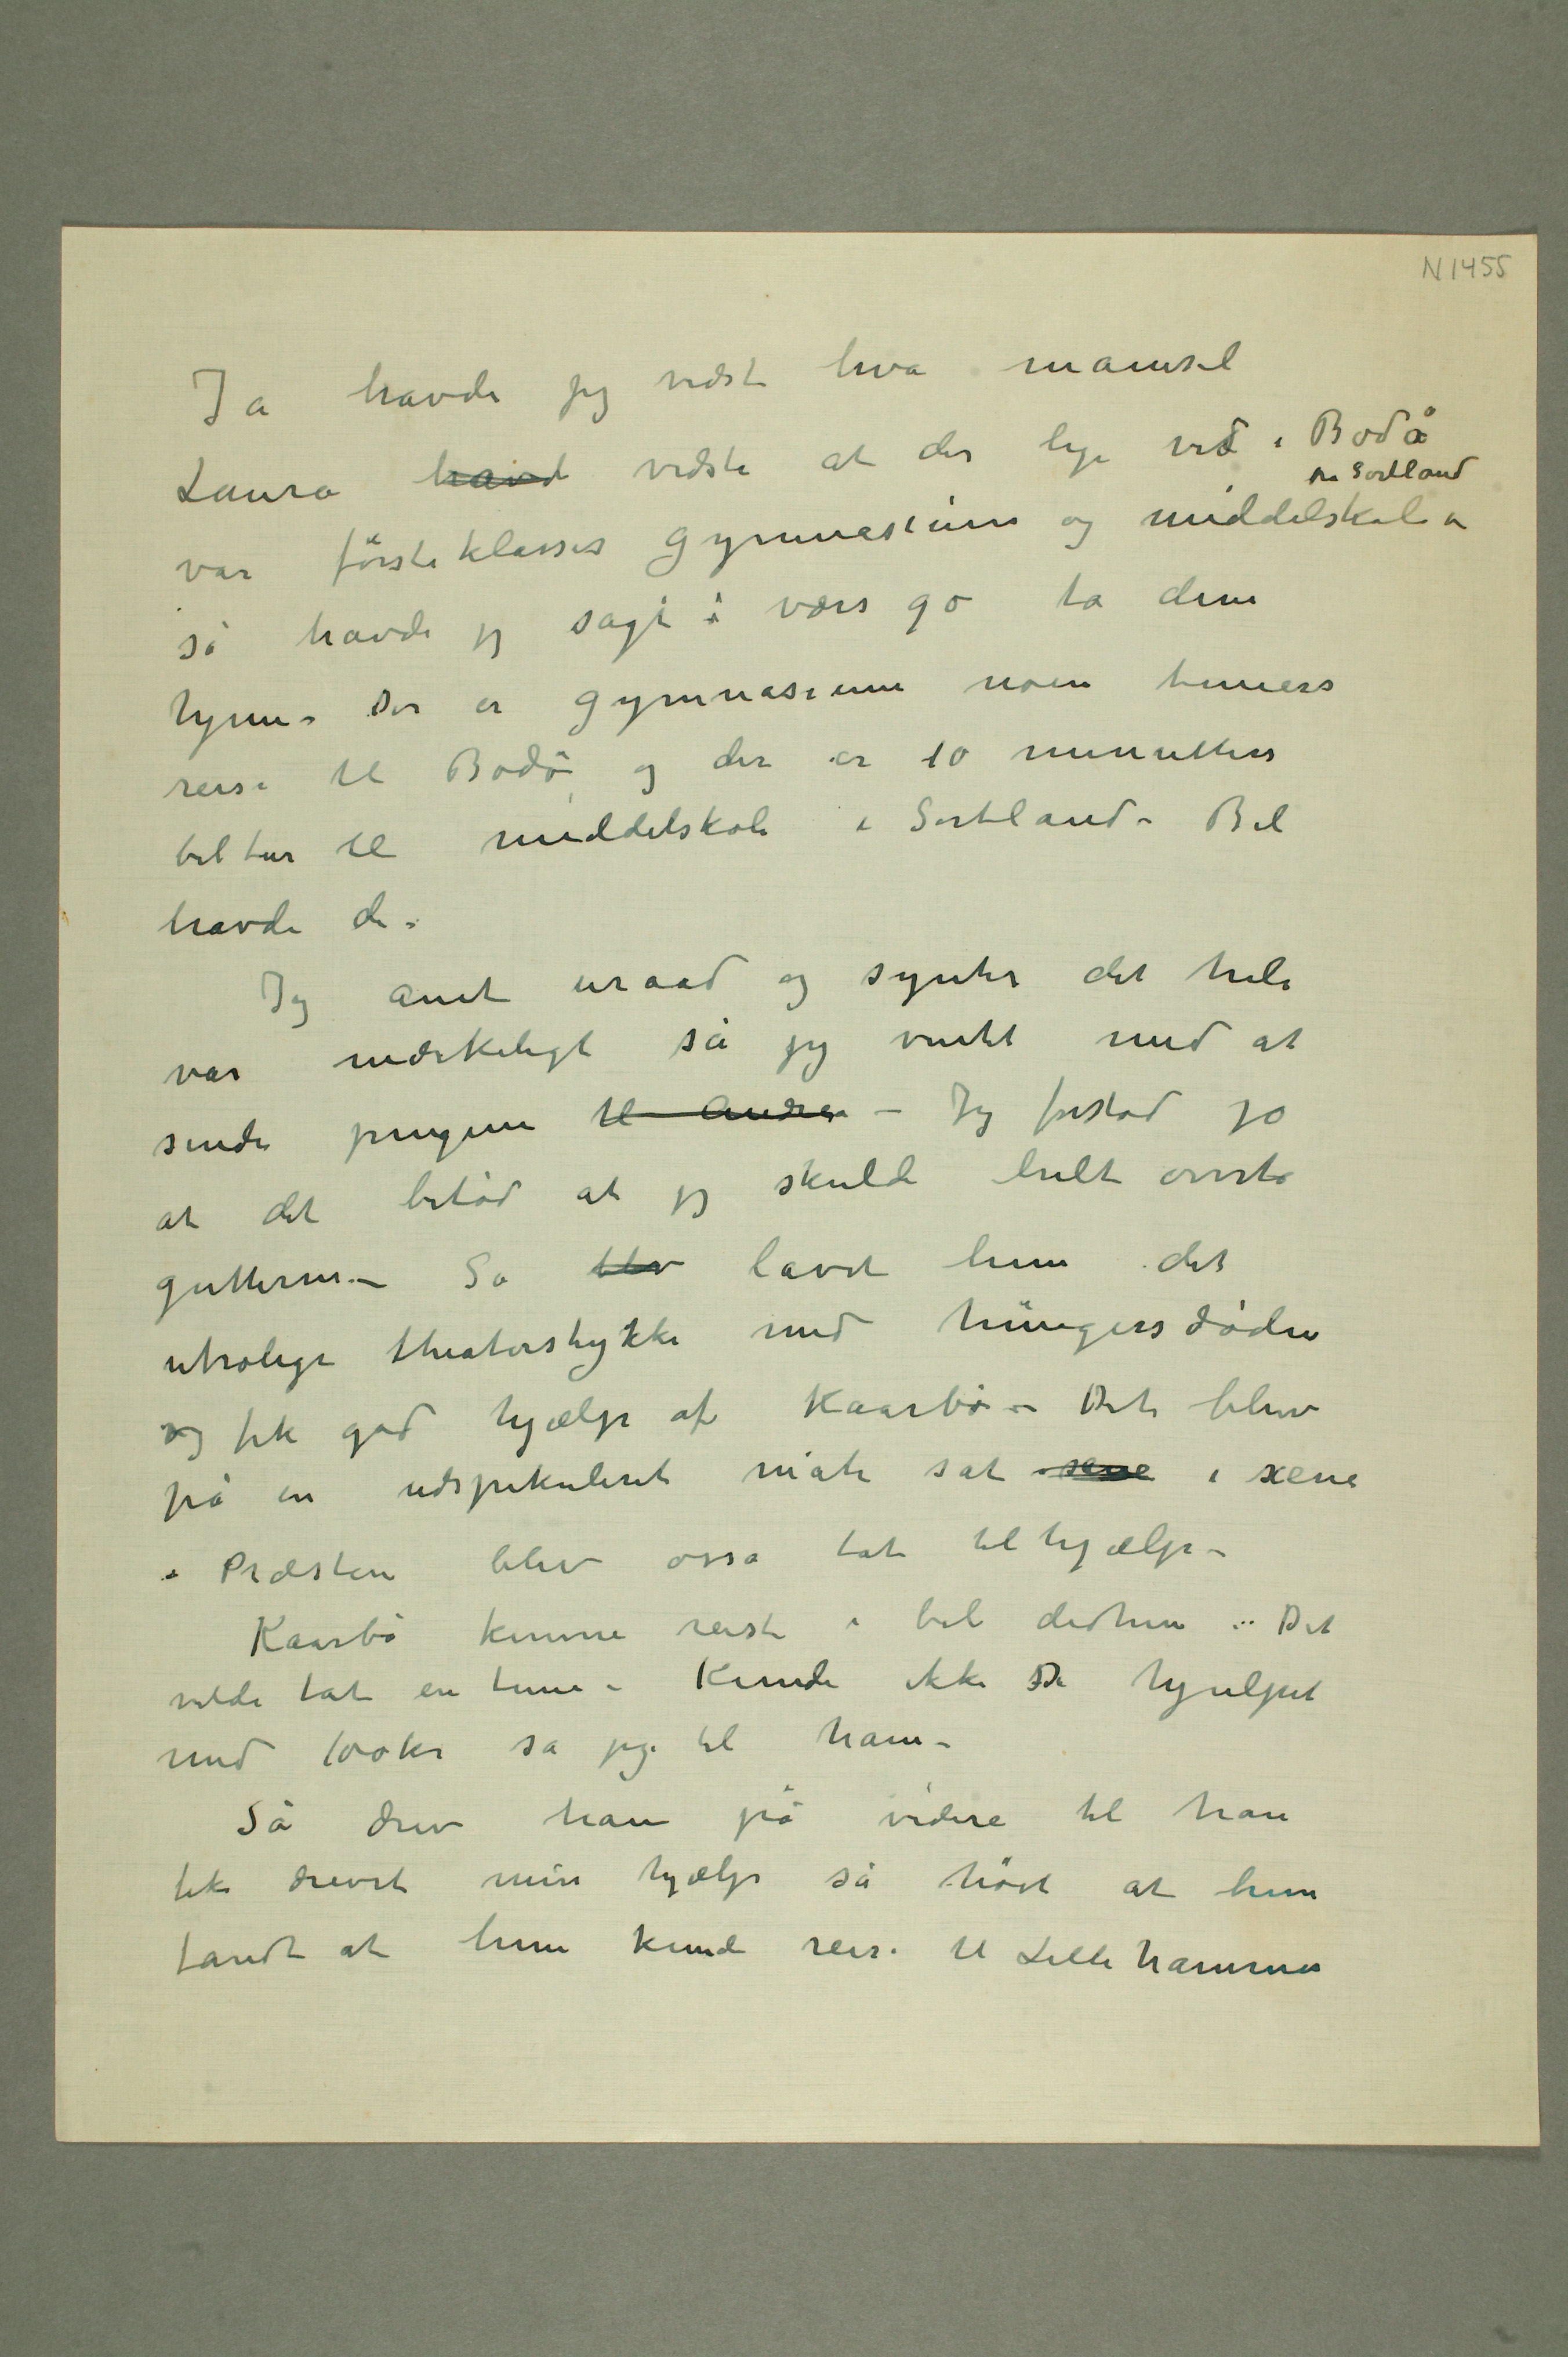 N 1455
Ja havde jeg vidst hva mamsel
Laura havd vidste at der lige ved i Bodø
og Sortland
var förste klasses gymnasium og middelskole
så havde jeg sagt: værs go ta dem
hjem – Der er gymnasium noen timers
reise til Bodø og der er 10 minutters
biltur til middelskole i Sortland – Bil
havde de.
Jeg anet uraad og syntes det hele
var mærkeligt så jeg ventet med at
sende pengene til Andrea – Jeg forstod jo
at det betød at jeg skulde helt overta
gutterne. – Så blev lavet hun det
utrolige theaterstykke med hüngersdøden
og fik god hjælp af Kaarbø – Det blev
på en udspekuleret måte sat scene i scene
– Præsten blev osså tat til hjælp –
Kaarbø kunne reist i bil didhen .. Det
vilde tat en time – Kunde ikke De hjulpet
med 100 kr sa jeg til ham –
Så drev han på videre til han
fik drevet min hjælp så høit at hun
fandt at hun kunde reise til Lillehammer